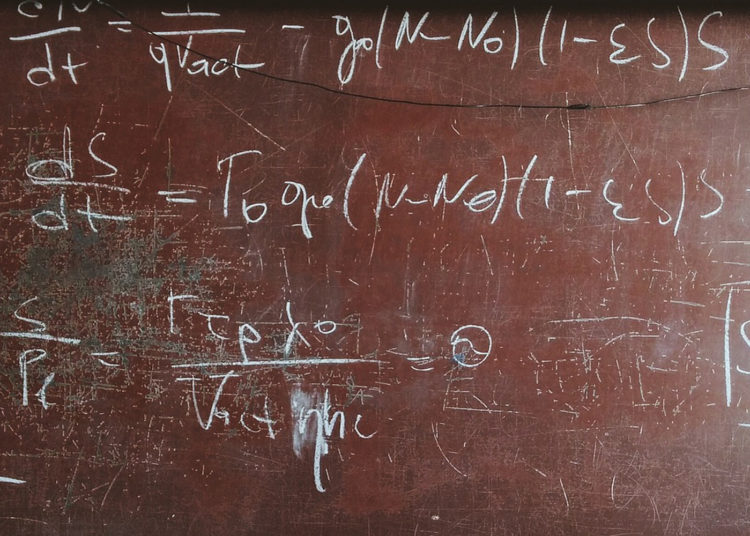 dN/dt = I/qVact - go(N-No)(1-εS)S
dS/dt = Γo go(N-No)(1-εS)S
S/Pf = Γτpλo/Vact ηhc = ②